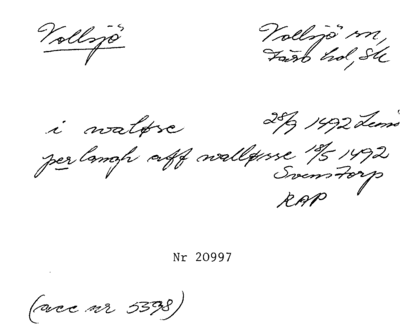 Vollsjö Vollsjö sn,
Färs hd, Sk
i waløse 28/9 1492
per langh aff walløsse 18/5 1492
Svenstorp
RAP
Nr 20997
(acc nr 5398)